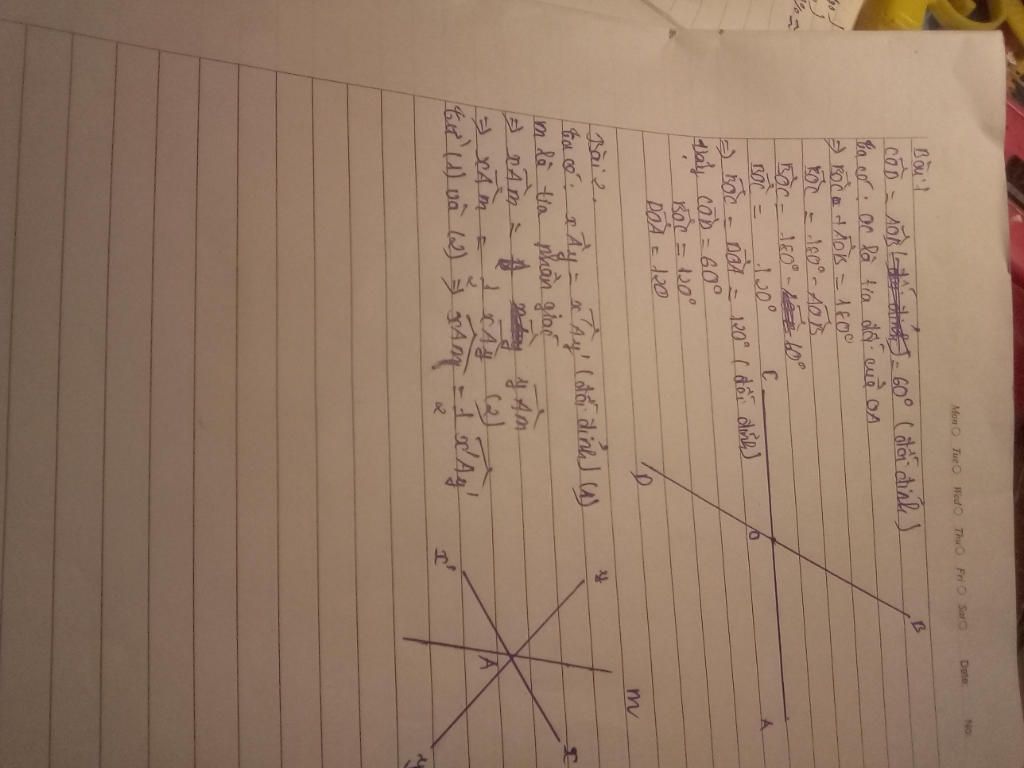 Mon Tue Wed Thu Fri Sat Date No.
Bài 1
CÔD = AÔB = 60° (đối đỉnh)
Ta có: OC là tia đối của OA
=> BÔC + AÔB = 180°
BÔC = 180° - AÔB
BÔC = 180° - 60°
BÔC = 120°
=> BÔC = DÔA = 120° (đối đỉnh)
Vậy CÔD = 60°
BÔC = 120°
DÔA = 120
C
D
O
B
A
Bài 2.
Ta có: xÂy = x'Ây' (đối đỉnh) (1)
m là tia phân giác
=> xÂm = yÂm
=> xÂm = 1/2 xÂy (2)
Từ (1) và (2) => xÂm = 1/2 x'Ây'
x'
y
A
m
x
y'